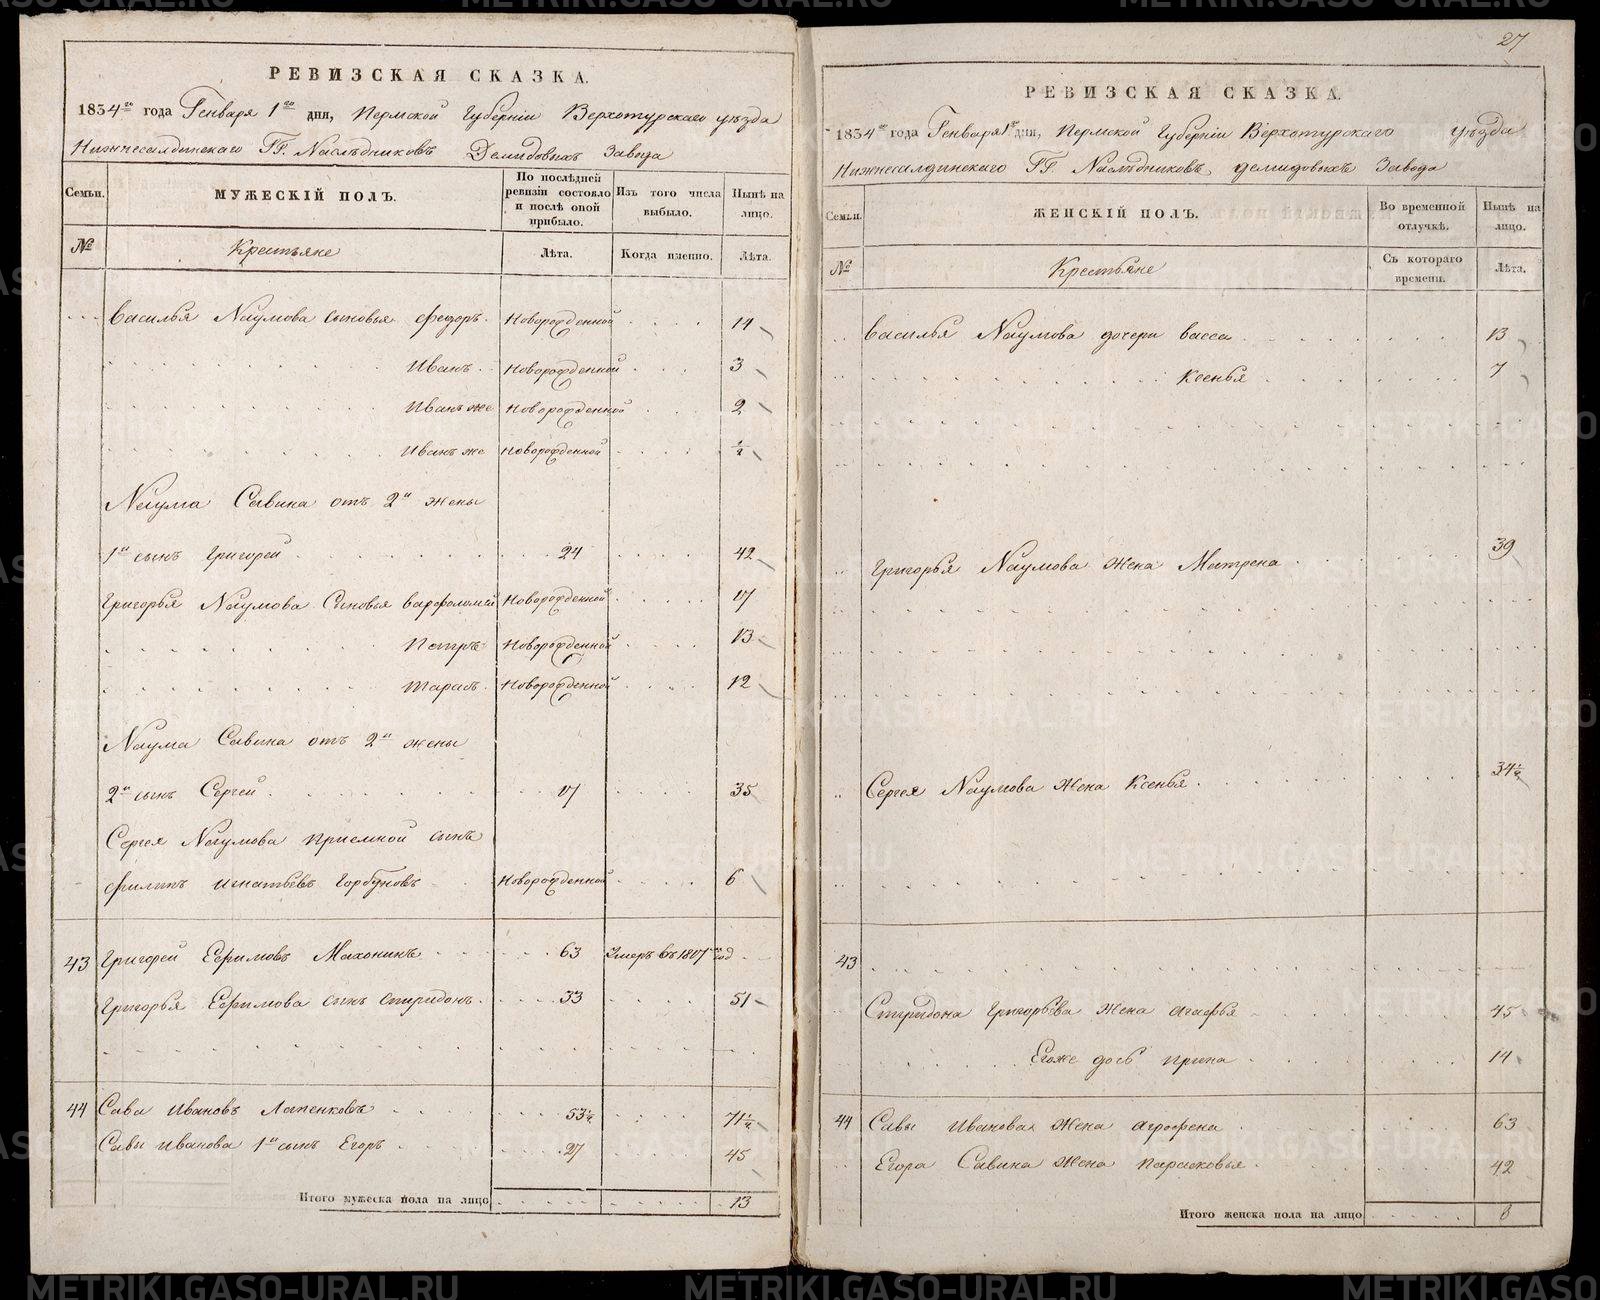 РЕВИЗСКАЯ СКАЗКА.
1834го года Генваря 1го дня, Пермской Губернiи Верхотурскаго уѣзда
Нижнесалдинскаго ГГ. Наслѣдниковъ Демидовыхъ Завода
Семьи.
МУЖЕСКІЙ ПОЛЪ.
По послѣдней ревизіи состояло и послѣ оной прибыло.
Изъ того числа выбыло.
Нынѣ на лицо.
№
Крестьяне
Лѣта.
Когда именно.
Лѣта.
Василья Наумова сыновья Федоръ Новорожденной 14
Иванъ Новорожденной 3
Иванъ же Новорожденной 2
Иванъ же Новорожденной ½
Наума Савина отъ 2й жены
1й сынъ Григорей 24 42
Григорья Наумова Сыновья Варфоломей Новорожденной 17
Петръ Новорожденной 13
Тарасъ Новорожденной 12
Наума Савина отъ 2й жены
2й сынъ Сергей 17 35
Сергея Наумова приемной сынъ
Филипъ Игнатьевъ Горбуновъ Новорожденной 6
43 Григорей Ефимовъ Махонинъ 63 Умеръ въ 1817мъ год
Григорья Ефимова сынъ Спиридонъ 33 51
44 Сава Ивановъ 53½ 71½
Савы Иванова 1й сынъ Егоръ 27 45
Итого мужеска пола на лицо 13
27
РЕВИЗСКАЯ СКАЗКА.
1834го года Генваря 1го дня, Пермской Губернiи Верхотурскаго уѣзда
Нижнесалдинскаго ГГ. Наслѣдниковъ Демидовыхъ Завода
Семьи.
ЖЕНСКІЙ ПОЛЪ.
Во временной отлучкѣ.
Нынѣ на лицо.
№
Крестьяне
Съ котораго времени.
Лѣта.
Василья Наумова дочери Васса 13
Ксенья 7
Григорья Наумова жена Матрена 39
Сергея Наумова жена Ксенья 34½
43
Спиридона Григорьева жена Агафья 45
Егоже дочь Ирина 14
44 Савы Иванова жена Агрофена 63
Егора Савина жена Парасковья 42
Итого женска пола на лицо 8
METRIKI.GASO-URAL.RU